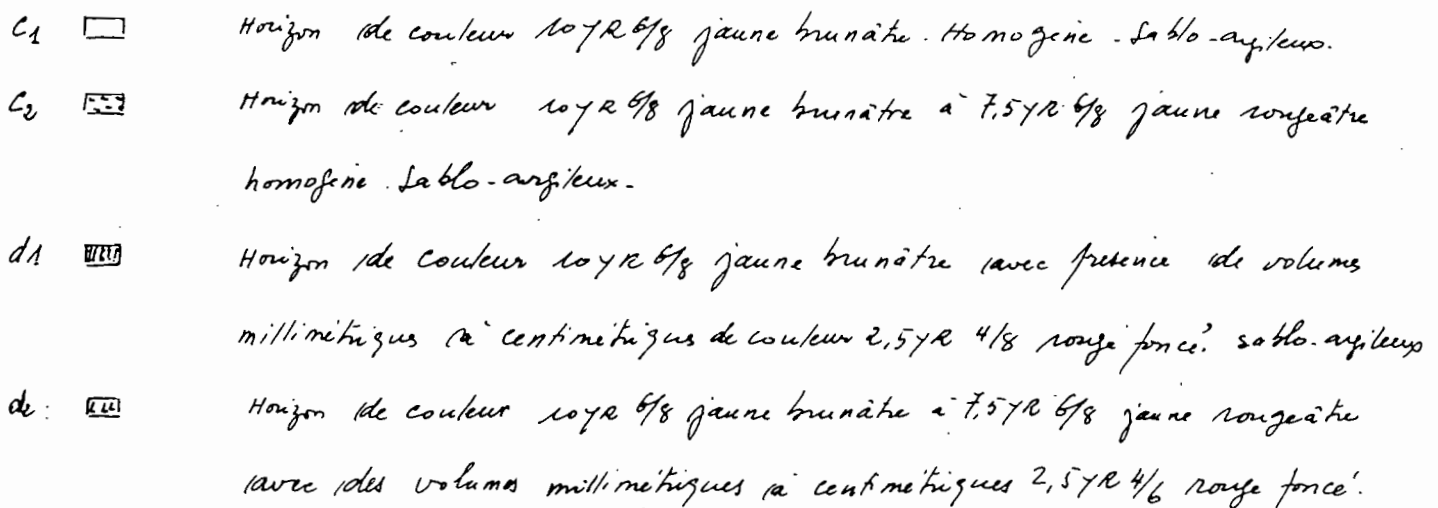 C1 Horizon de couleur 10YR 6/8 jaune brunâtre. Homogène - Sablo-argileux.
C2 Horizon de couleur 10YR 6/8 jaune brunâtre à 7,5YR 6/8 jaune rougeâtre
homogène. Sablo-argileux-
d1 Horizon de couleur 10YR 6/8 jaune brunâtre avec présence de volumes
millimétriques à centimétriques de couleur 2,5YR 4/8 rouge foncé. sablo-argileux
d2: Horizon de couleur 10YR 6/8 jaune brunâtre à 7,5YR 6/8 jaune rougeâtre
avec des volumes millimétriques à centimétriques 2,5YR 4/6 rouge foncé.